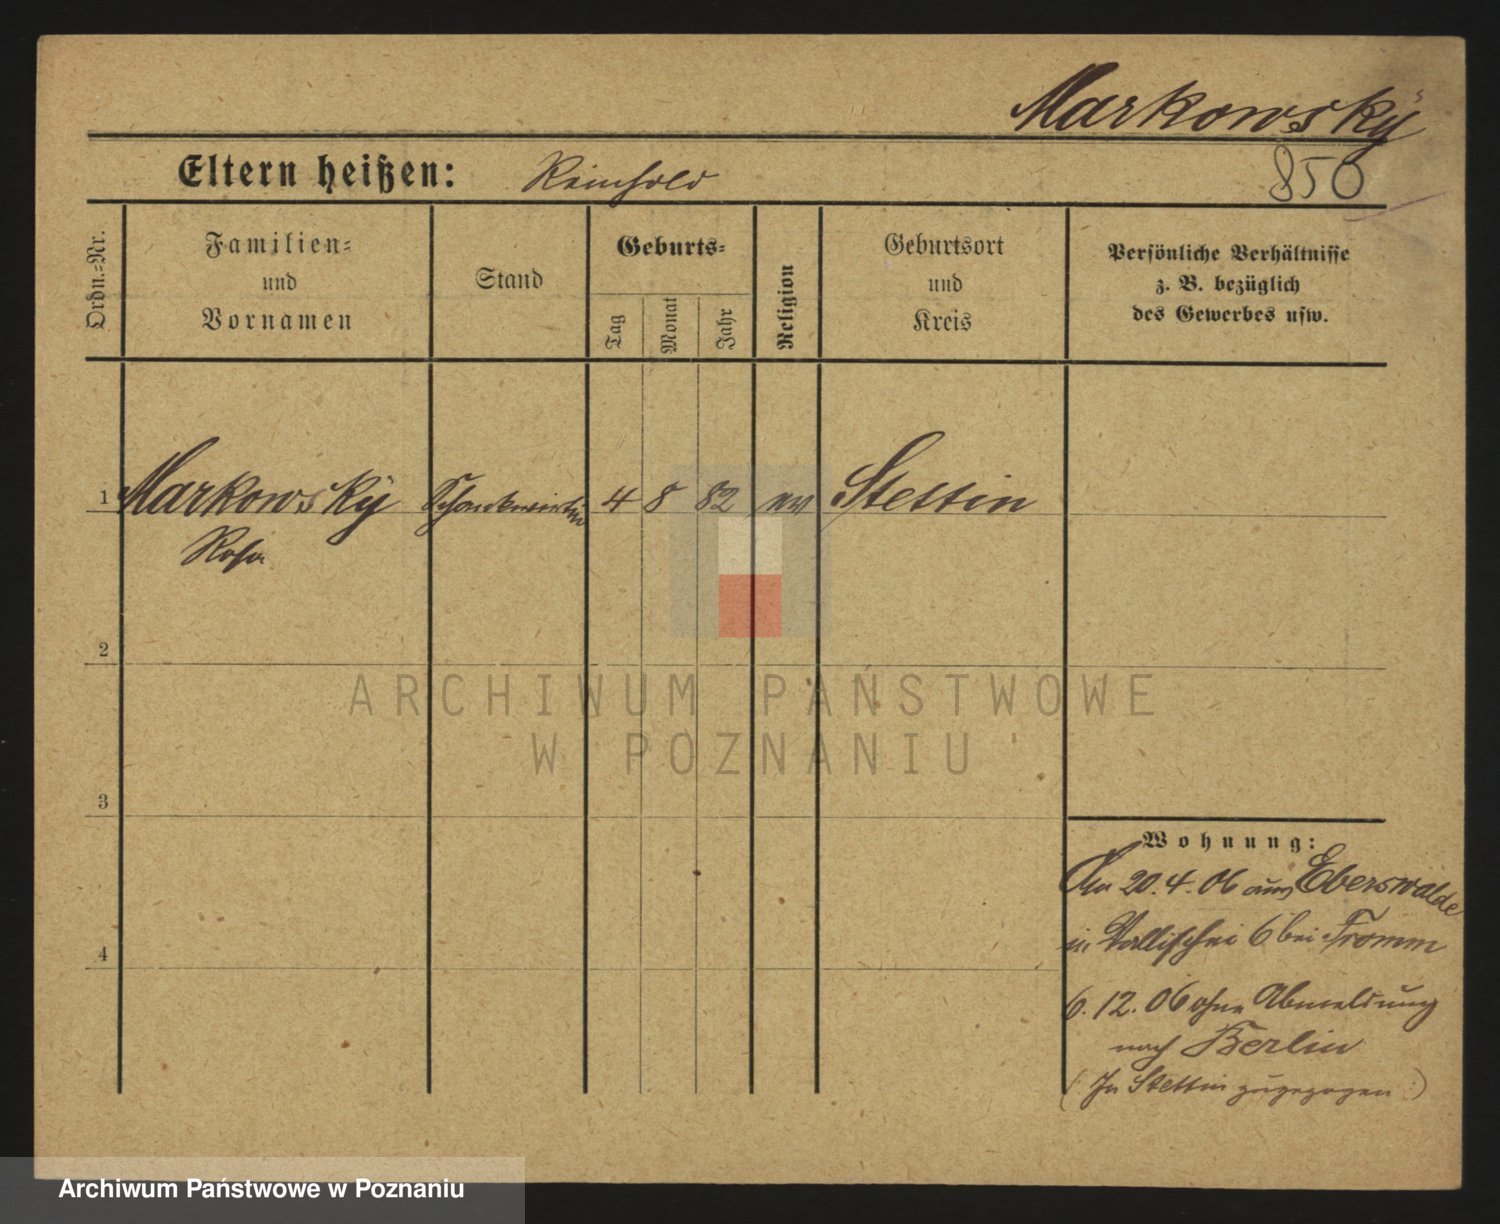 Markowsky
Eltern heißen: Reinhold 850
Ordn.=Nr.
Familien=
und
Vornamen
Stand
Geburts=
Tag
Monat
Jahr
Religion
Geburtsort
und
Kreis
Persönliche Verhältnisse
z. B. bezüglich
des Gewerbes usw.
1 Markowsky Schankwirtin 4 8 82 ev Stettin
Rosa
2
3
4
Wohnung:
20.4.06 aus Eberswalde
in Wallischei 6 bei Fromm
6.12.06 ohne Abmeldung
nach Berlin
(In Stettin zugezogen)
ARCHIWUM PAŃSTWOWE
W POZNANIU
Archiwum Państwowe w Poznaniu